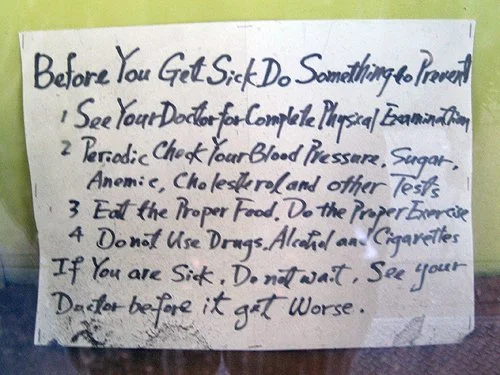 Before You Get Sick Do Something to Prevent
1 See Your Doctor for Complete Physical Examination
2 Periodic Check Your Blood Pressure, Sugar,
Anemic, Cholesterol and other Tests
3 Eat the Proper Food, Do the Proper Exercise
4 Do not Use Drugs, Alcohol and Cigarettes
If You are Sick, Do not wait, See your
Doctor before it get Worse.